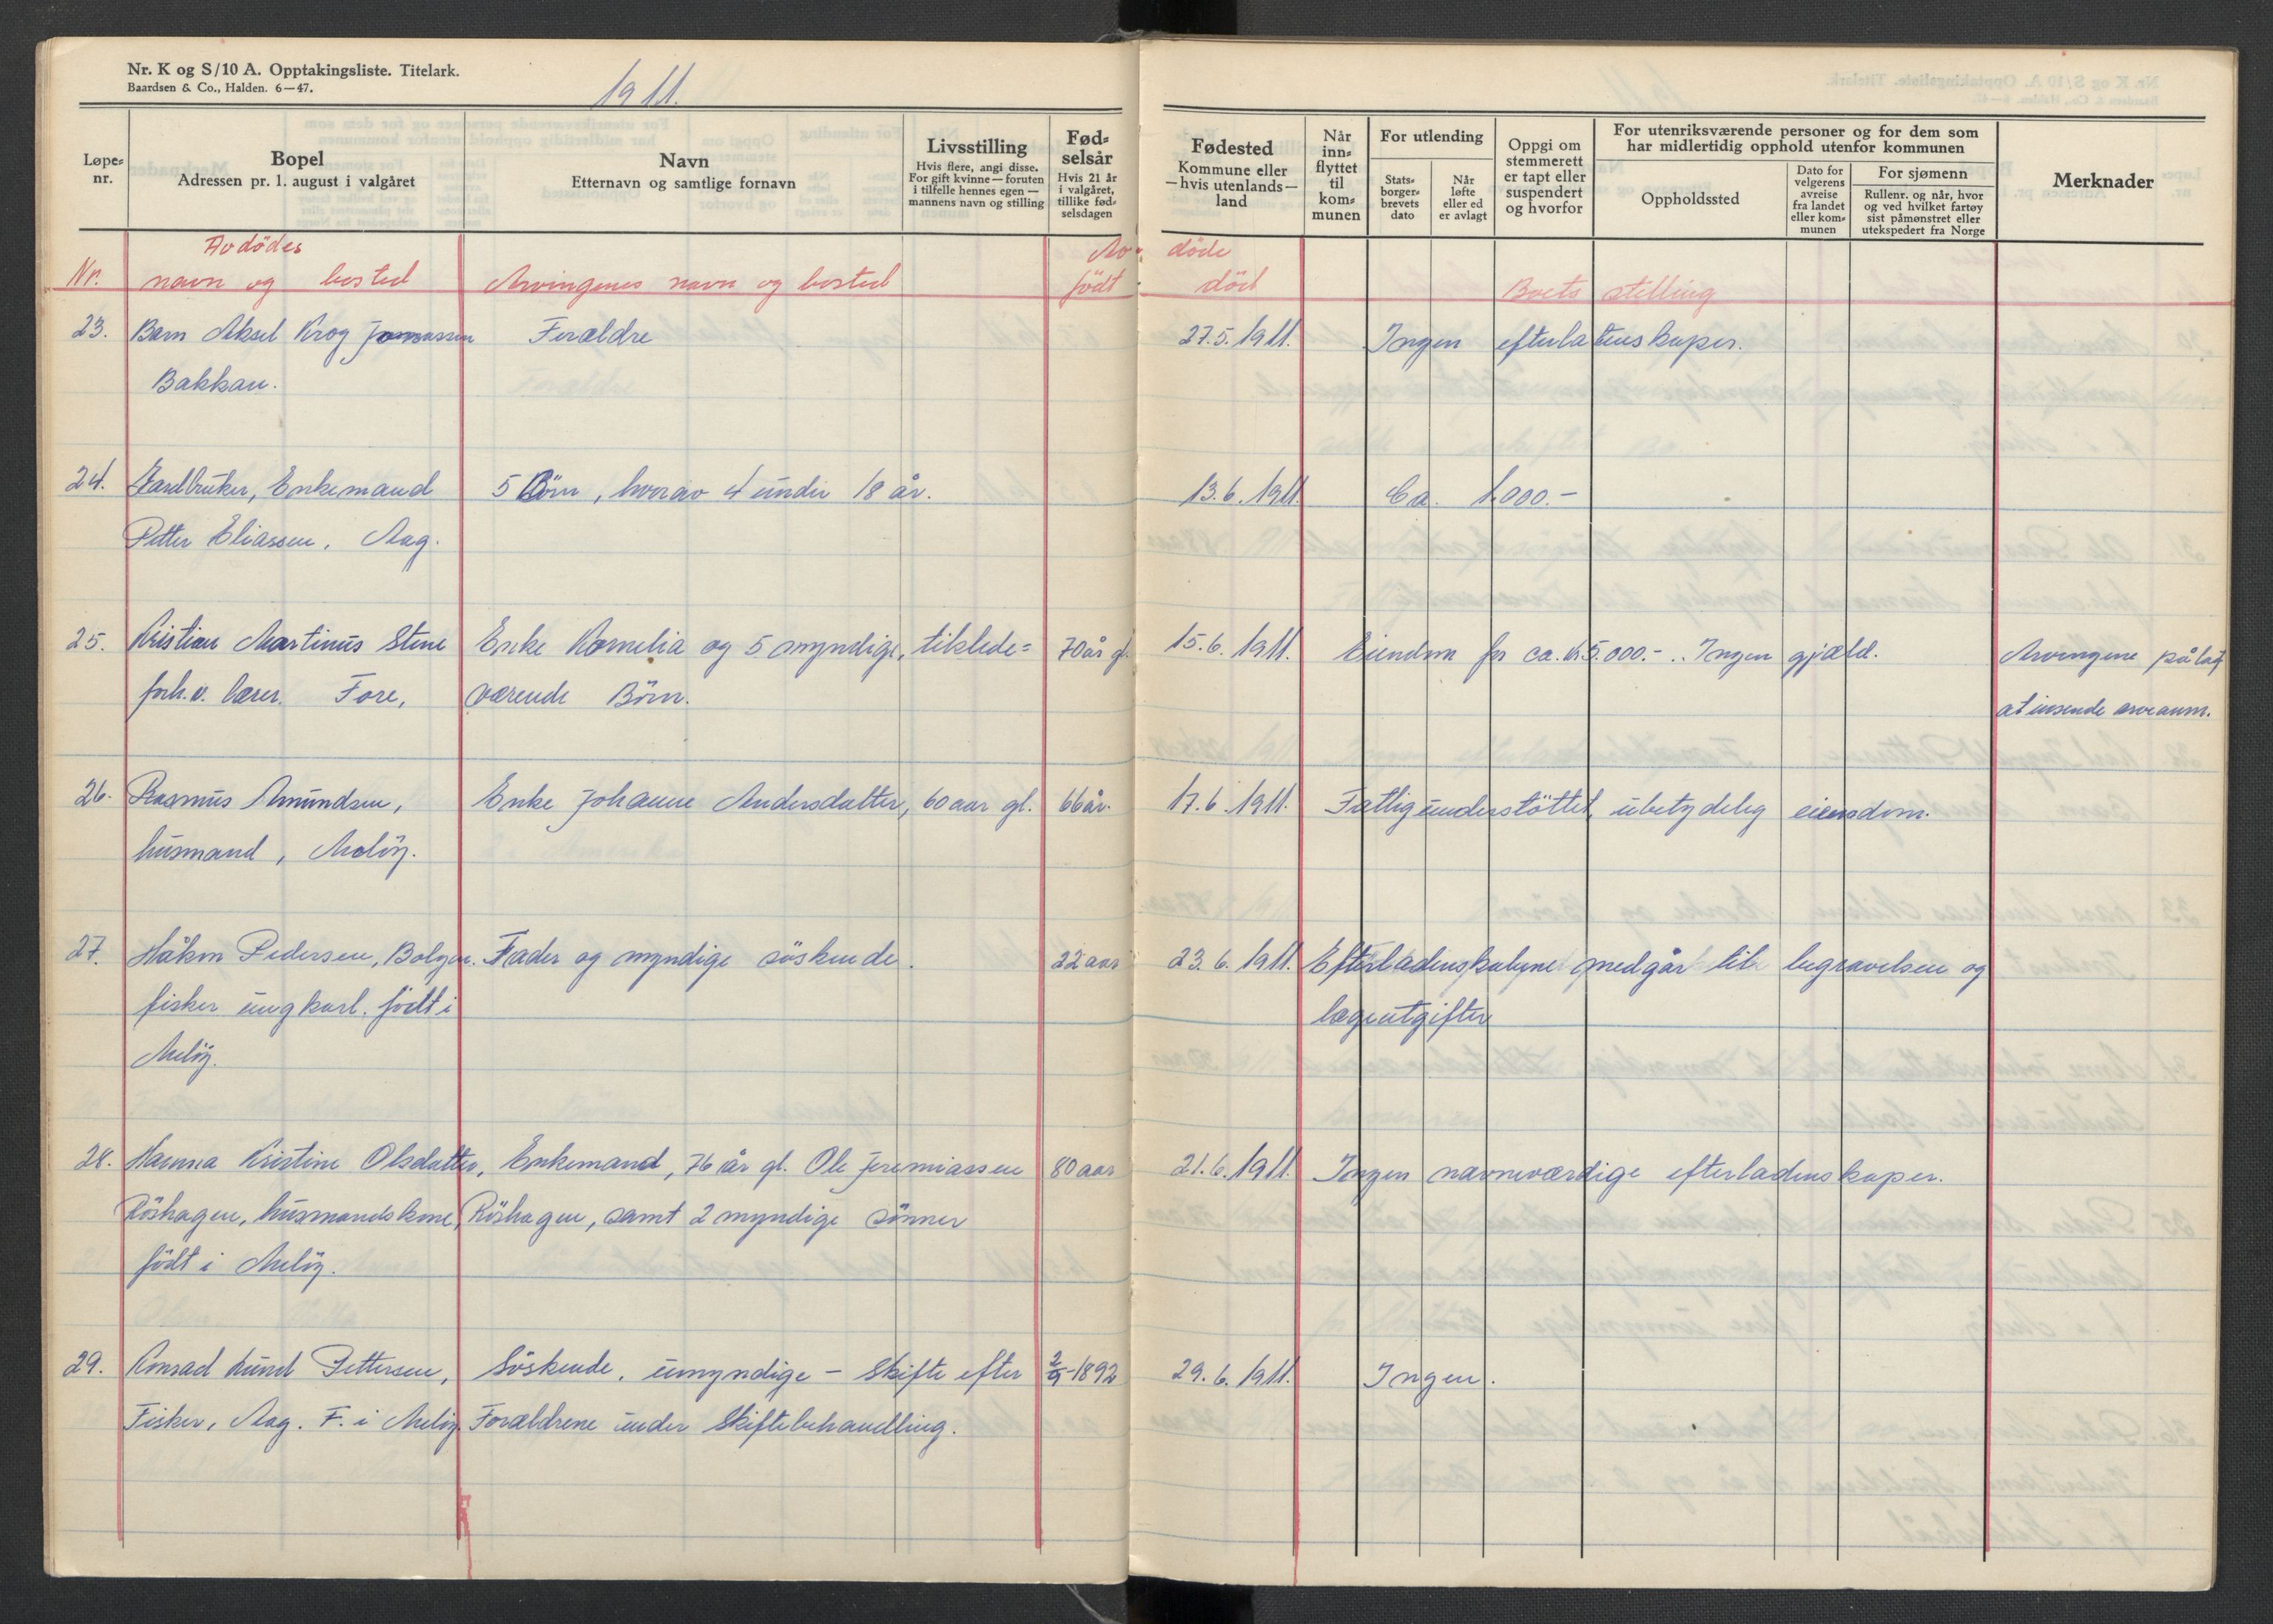 Nr. K og S/10 A. Opptakingsliste. Titelark.
Baardsen & Co., Halden. 6—47.
1911.
Løpe-nr.
Bopel
Adressen pr. 1. august i valgåret
Navn
Etternavn og samtlige fornavn
Livsstilling
Hvis flere, angi disse.
For gift kvinne — foruten
i tilfelle hennes egen —
mannens navn og stilling
Fød-
selsår
Hvis 21 år
i valgåret,
tillike fød-
selsdagen
Fødested
Kommune eller
— hvis utenlands —
land
Når
inn-
flyttet
til
kom-
munen
For utlending
Stats-
borger-
brevets
dato
Når
løfte
eller ed
er avlagt
Oppgi om
stemmerett
er tapt eller
suspendert
og hvorfor
For utenriksværende personer og for dem som
har midlertidig opphold utenfor kommunen
Oppholdssted
Dato for
velgerens
avreise
fra landet
eller kom-
munen
For sjømenn
Rullenr. og når, hvor
og ved hvilket fartøy
sist påmønstret eller
utekspedert fra Norge
Merknader
Avdödes Av- döde
Nr. navn og bosted Arvingenes navn og bosted født död Boets stilling
23. Barn Aksel Krog Jonassen Forældre 27.5.1911. Ingen efterlatenskaper.
Bakkan.
24. Gardbruker, Enkemand 5 Börn, hvorav 4 under 18 år. 13.6.1911. Ca. 1.000.-
Petter Eliassen, Aag.
25. Kristian Martinus Stene Enke Kornelia og 5 myndige, tilstede- 70 år gl. 15.6.1911. Eiendom for ca. kr 5.000.-. Ingen gjæld. Arvingene pålagt
forh.v. lærer. Fore, værende Börn. at innsende arveanm.
26. Rasmus Amundsen, Enke Johanne Andersdatter, 60 aar gl. 66 år. 17.6.1911. Fattigunderstöttet, ubetydelig eiendom.
husmand, Melöy.
27. Håkon Pedersen, Bolgen. Fader og myndige söskende. 22 aar 23.6.1911. Efterladenskapene medgår til begravelsen og
fisker ungkarl. födt i lægeutgifter
Melöy.
28. Hanna Kristine Olsdatter, Enkemand, 76 år gl. Ole Jeremiassen 80 aar 21.6.1911. Ingen navneværdige efterladenskaper.
Röshagen, husmandskone, Röshagen, samt 2 myndige sönner
födt i Melöy.
29. Konrad Lund Pettersen, Söskende, umyndige - Skifte efter 2/9-1892 29.6.1911. Ingen.
Fisker, Aag. F. i Melöy. Forældrene under Skiftebehandling.